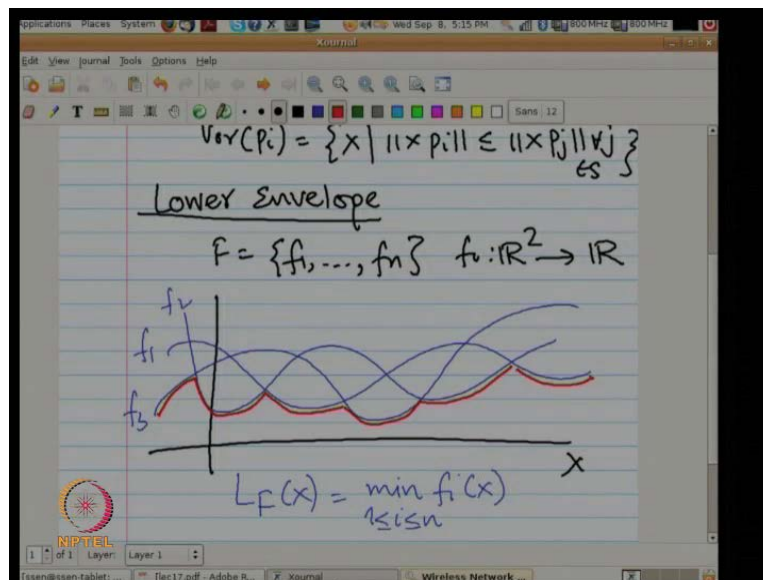 Applications Places System Wed Sep 8, 5:15 PM 800 MHz 800 MHz
Xournal
Edit View Journal Tools Options Help
T Sans 12
Vor(Pi) = {x | ||x pi|| ≤ ||x Pj|| ∀j
∈S }
Lower Envelope
F = {f1, ..., fn} fi : ℝ² → ℝ
f2
f1
f3
X
LF(x) = min fi(x)
1≤i≤n
NPTEL
1 of 1 Layer: Layer 1
[ssen@ssen-tablet: ... [lec17.pdf - Adobe R... Xournal Wireless Network ...